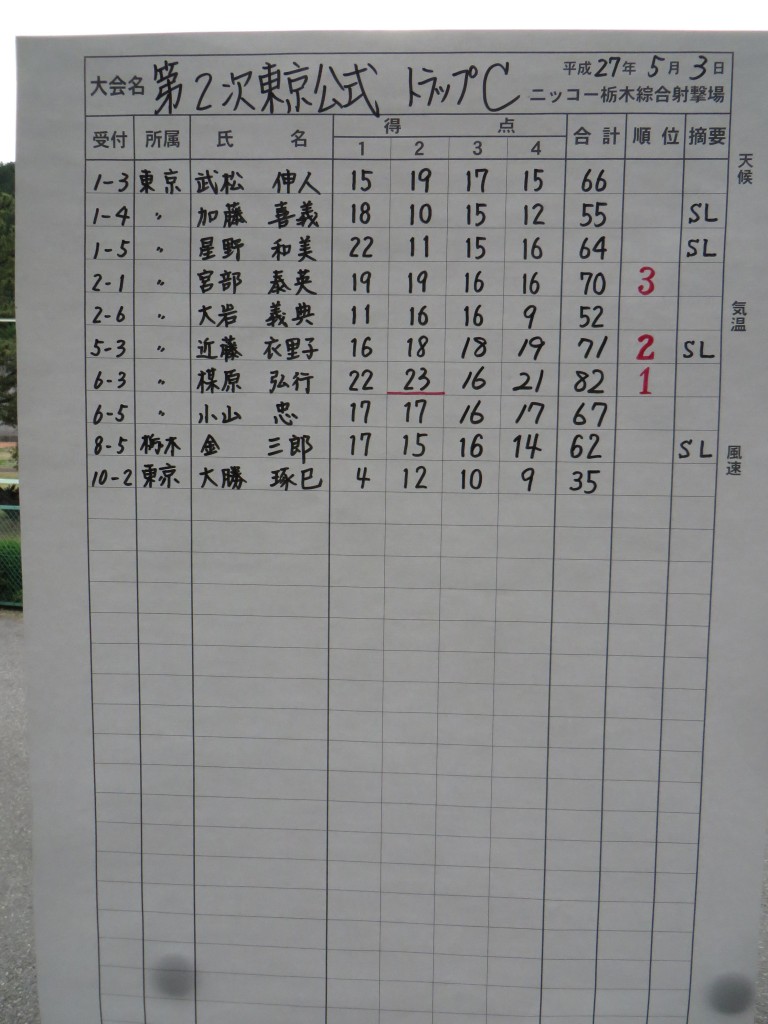 大会名 第2次東京公式 トラップC 平成27年5月3日
ニッコー栃木綜合射撃場
受付 所属 氏名 得点 合計 順位 摘要
1 2 3 4
天候
1-3 東京 武松 伸人 15 19 17 15 66
1-4 〃 加藤 喜義 18 10 15 12 55 SL
1-5 〃 星野 和美 22 11 15 16 64 SL
2-1 〃 宮部 泰英 19 19 16 16 70 3
気温
2-6 〃 大岩 義典 11 16 16 9 52
5-3 〃 近藤 衣里子 16 18 18 19 71 2 SL
6-3 〃 楳原 弘行 22 23 16 21 82 1
6-5 〃 小山 忠 17 17 16 17 67
8-5 栃木 金 三郎 17 15 16 14 62 SL
風速
10-2 東京 大勝 琢巳 4 12 10 9 35